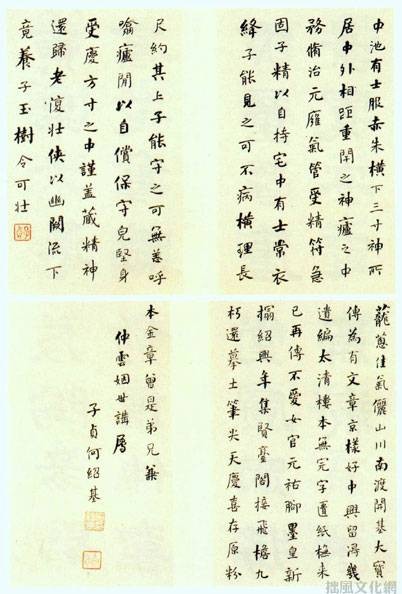 中池有士服赤朱橫下三寸神所
居中外相距重閉之神廬之中
務脩治元廱氣管受精符急
固子精以自持宅中有士常衣
絳子能見之可不病橫理長
尺約其上子能守之可無恙呼
噏廬閒以自償保守皃堅身
受慶方寸之中謹蓋藏精神
還歸老復壯俠以幽闕流下
竟養子玉樹令可壯
蘢蔥佳氣儷山川南渡開基大寶
傳為有文章京樣好中興留得幾
遺編太清樓本無完字匱紙來
已再傳不愛女官元祐腳墨皇新
搨紹興年集賢閣接飛九
朽還摹土筆尖天慶喜存原粉
本金章曾是弟兄
仲雲姻世講屬
子貞何紹基
拙風文化網